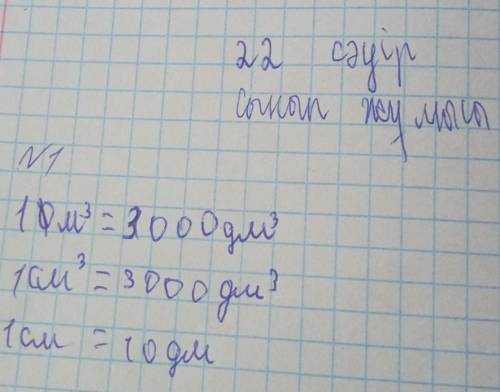 22 сәуір
сынып жұмысы
№1
1м³ = 3000дм³
1см³ = 3000дм³
1см = 10дм